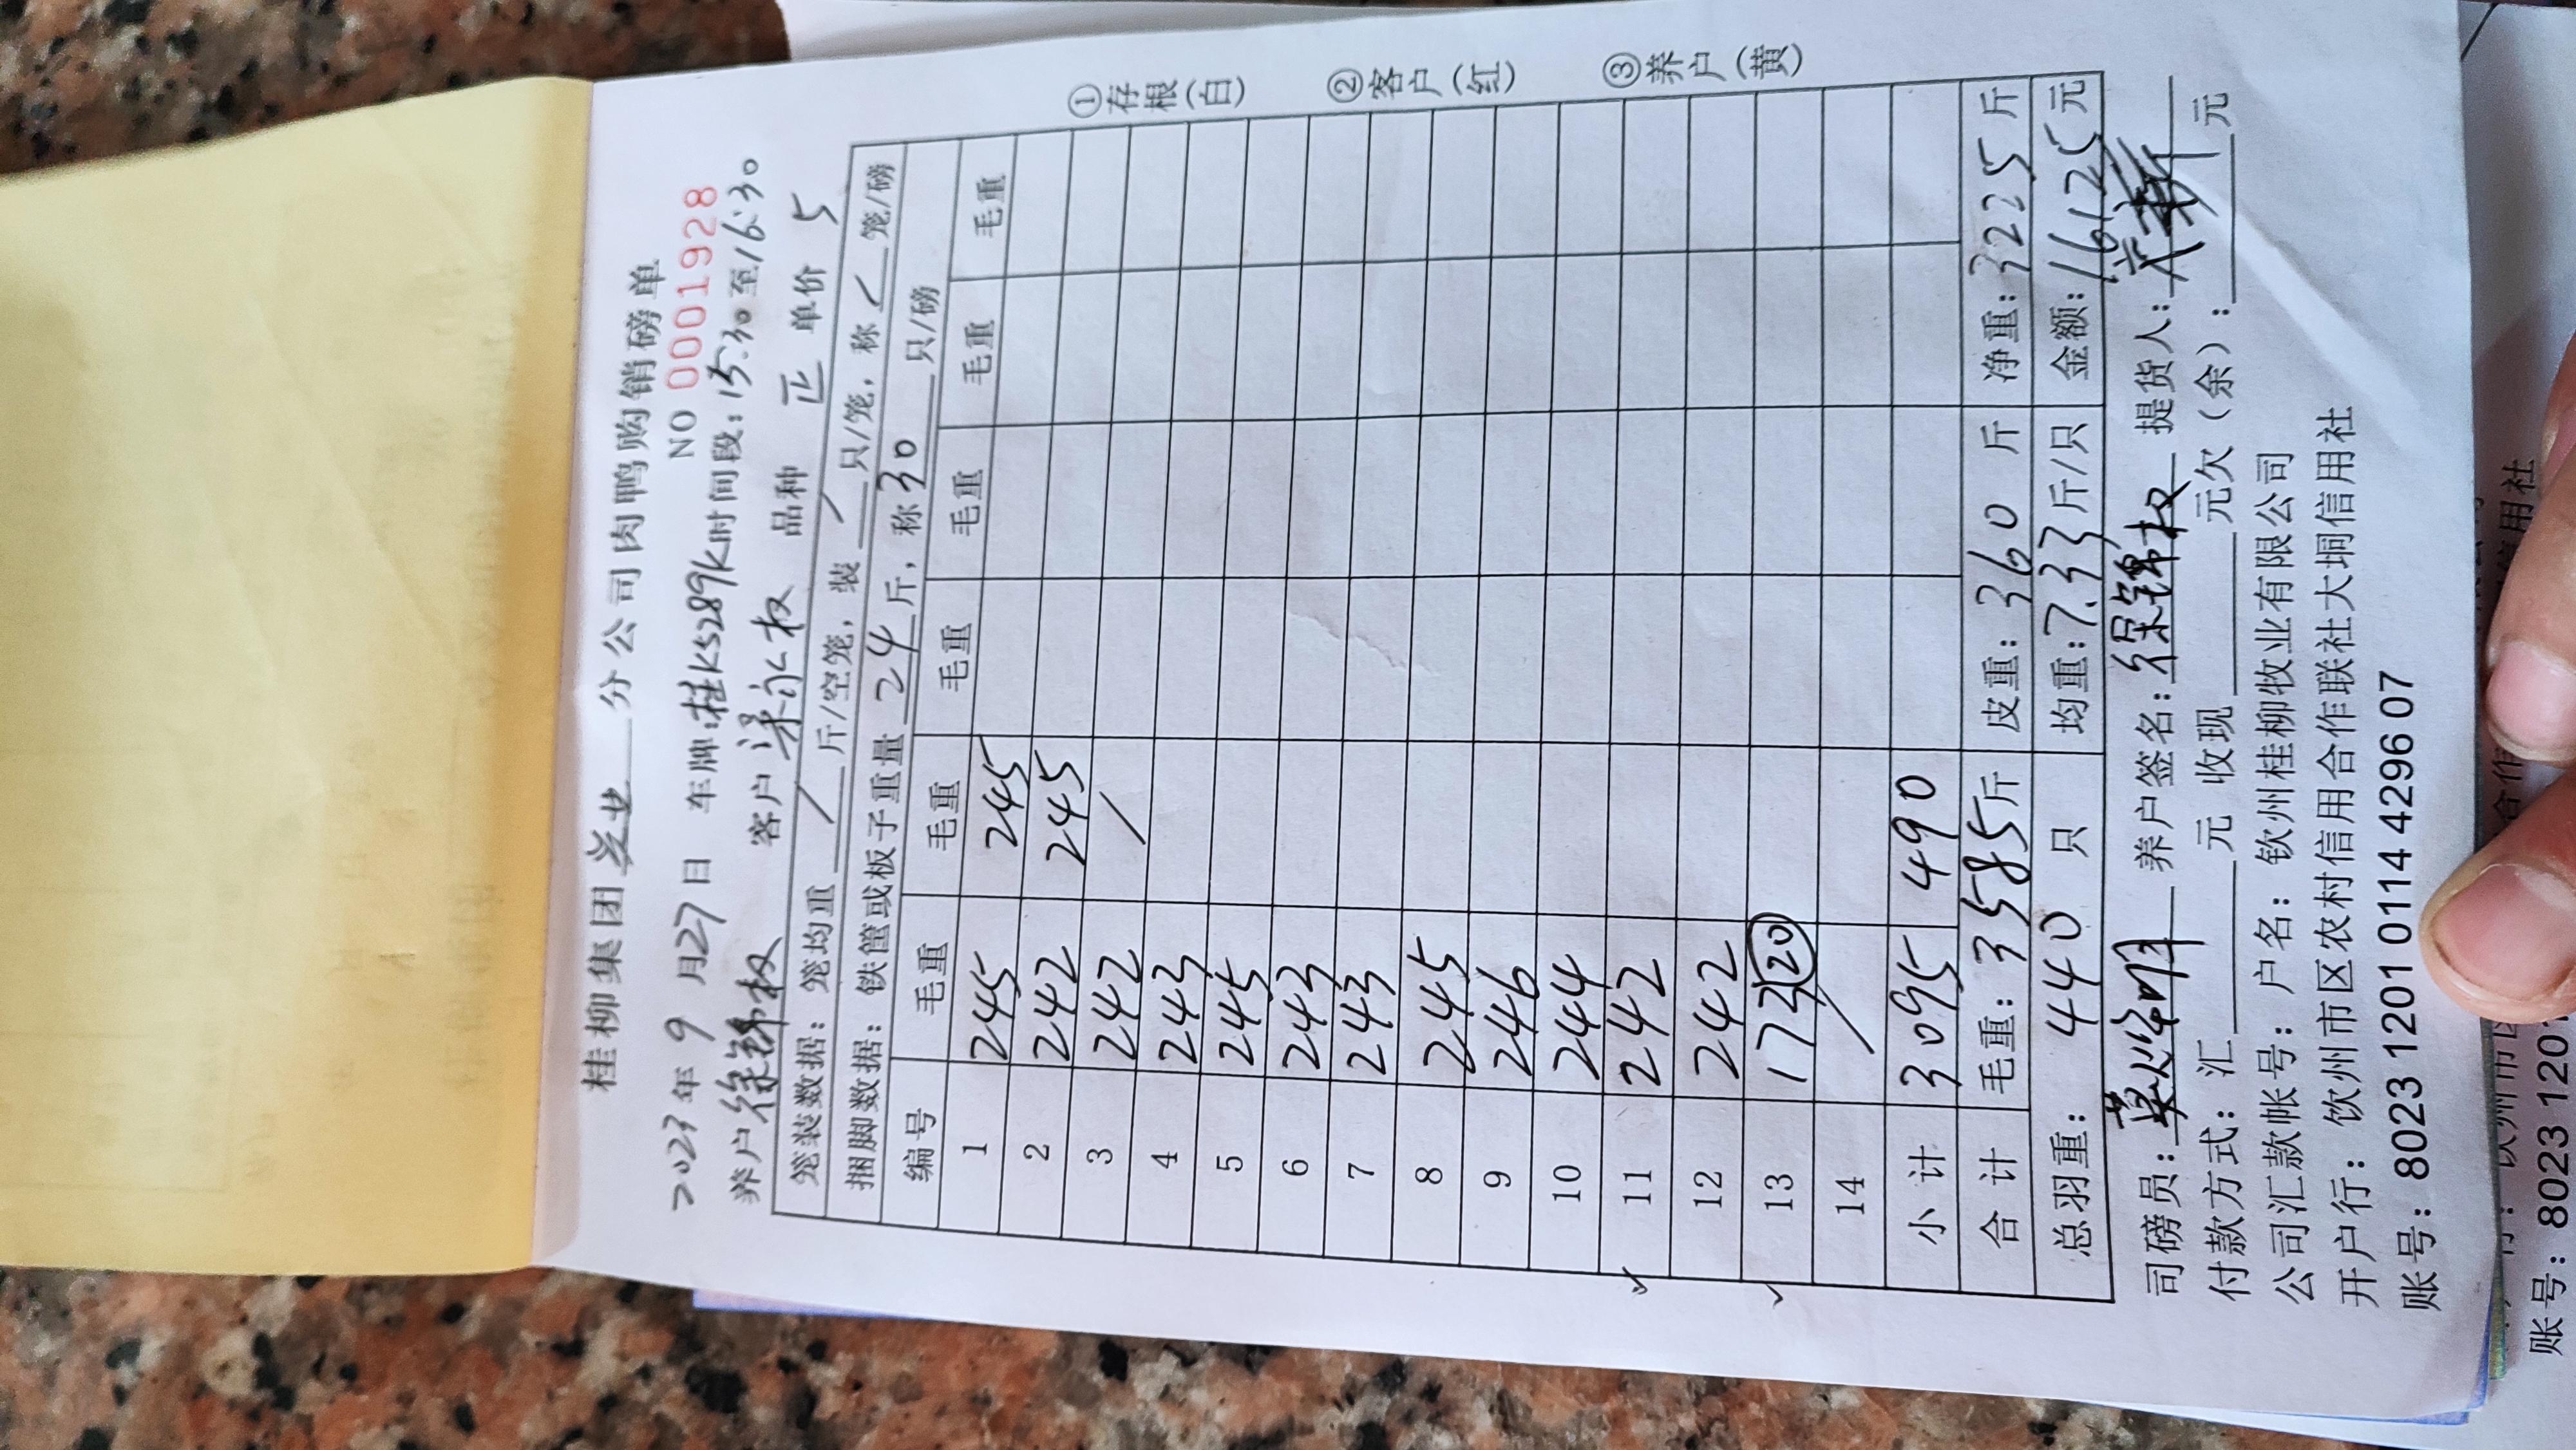 桂柳集团兴业分公司肉鸭购销磅单
NO 00001928
2023年9月27日 车牌:桂K5289K时间段:15:30至16:30
养户徐锦权 客户梁永权 品种 正 单价 5
笼装数据:笼均重 / 斤/空笼,装 / 只/笼,称 / 笼/磅
捆脚数据:铁筐或板子重量 24 斤,称 30 只/磅
编号 毛重 毛重 毛重 毛重 毛重 毛重
1 245 245
2 242 245
3 242 /
4 243
5 245
6 243
7 243
8 245
9 246
10 244
11 242
12 242
13 173 20
14 /
小计 3095 490
合计 毛重:3585斤 皮重:360斤 净重:3225斤
总羽重:440只 均重:7.33斤/只 金额:16125元
司磅员: 养户签名:徐锦权 提货人:
付款方式:汇 元 收现 元欠(余): 元
公司汇款帐号:户名:钦州桂柳牧业有限公司
开户行:钦州市区农村信用合作联社大垌信用社
账号:8023 1201 0114 4296 07
①存根(白) ②客户(红) ③养户(黄)
账号:8023 1201